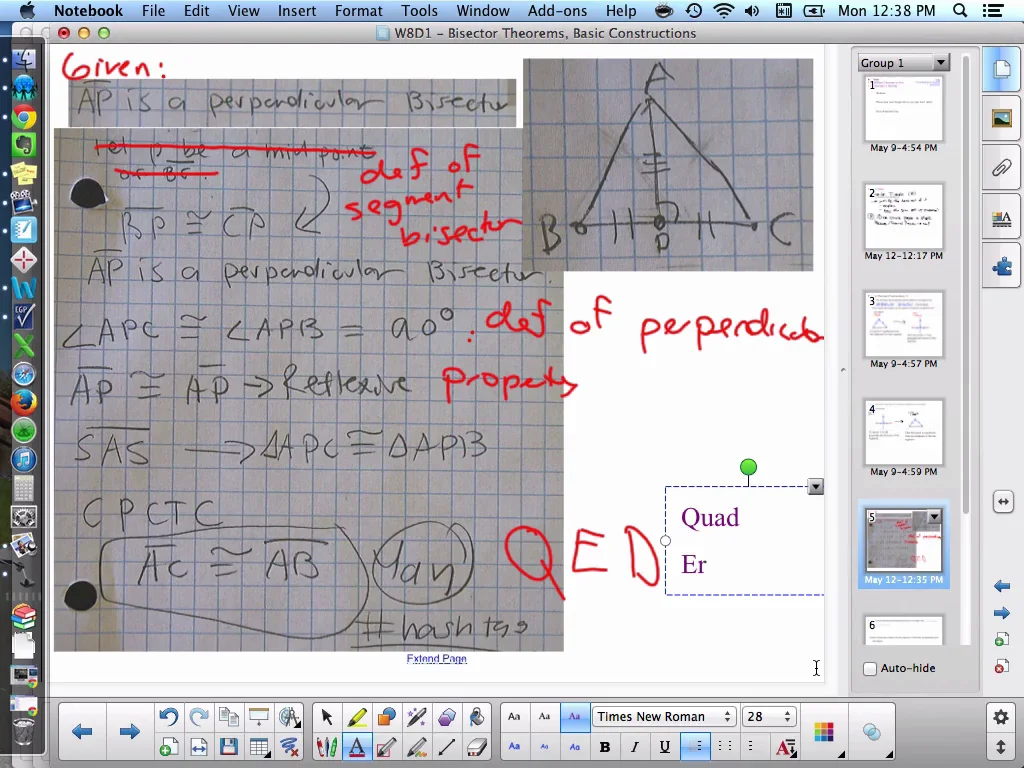 Notebook File Edit View Insert Format Tools Window Add-ons Help Mon 12:38 PM
W8D1 - Bisector Theorems, Basic Constructions
Given:
AP is a perpendicular Bisector
let p be a midpoint
of BC.
def of
segment
bisector
BP ≅ CP
AP is a perpendicular Bisector.
∠APC ≅ ∠APB = 90°. def of perpendicular
AP ≅ AP → Reflexive property
SAS → △APC ≅ △APB
CPCTC
AC ≅ AB yay QED
#hashtag
A
B
P
C
Quad
Er
Extend Page
Group 1
1
May 9-4:54 PM
2
May 12-12:17 PM
3
May 9-4:57 PM
4
May 9-4:59 PM
5
May 12-12:35 PM
6
Auto-hide
Aa Aa Aa Times New Roman 28
Aa Aa Aa B I U